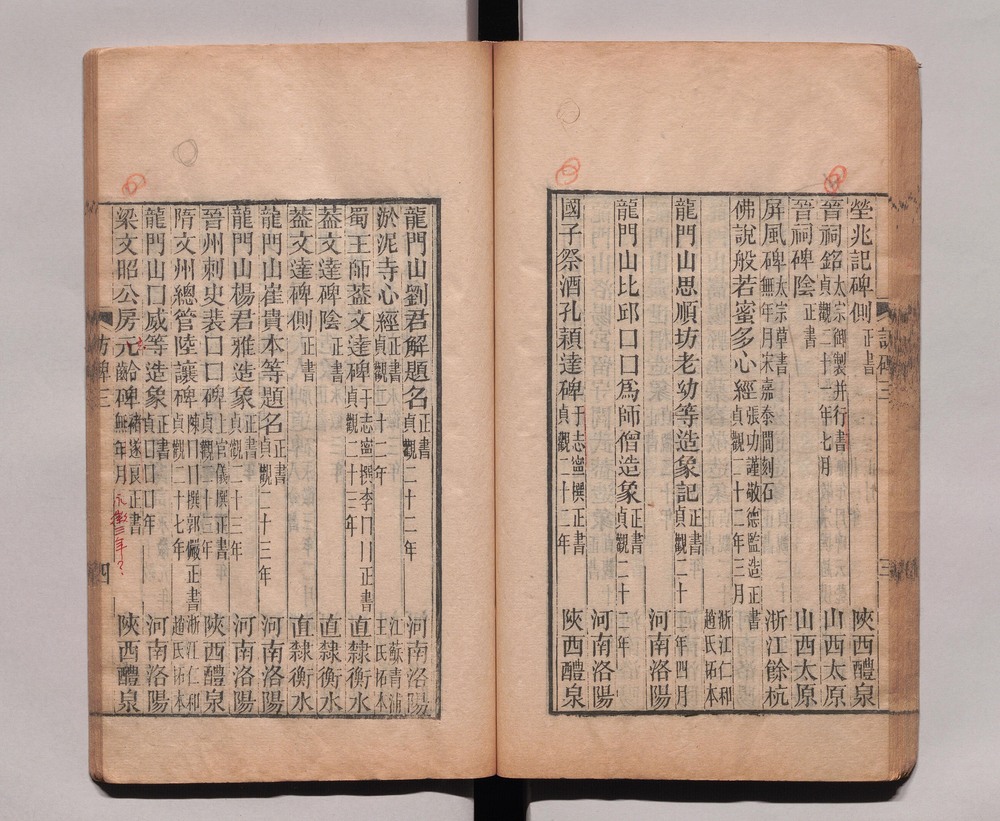 訪碑三
三
塋兆記碑側 正書 陝西醴泉
晉祠銘 太宗御製并行書 貞觀二十一年七月 山西太原
晉祠碑陰 正書 山西太原
屏風碑 太宗草書 無年月宋嘉泰間刻石 浙江餘杭
佛說般若蜜多心經 張功謹敬德監造正書 貞觀二十二年三月 浙江仁和趙氏拓本
龍門山思順坊老幼等造象記 正書 貞觀二十二年四月 河南洛陽
龍門山比邱口口爲師僧造象 正書 貞觀二十二年 河南洛陽
國子祭酒孔穎達碑 于志寧撰正書 貞觀二十二年 陝西醴泉
龍門山劉君解題名 正書 貞觀二十二年 河南洛陽
淤泥寺心經 正書 貞觀二十二年 江蘇青浦王氏拓本
蜀王師葢文達碑 于志寧撰李口口正書 貞觀二十三年 直隸衡水
葢文達碑陰 正書 直隸衡水
葢文達碑側 正書 直隸衡水
龍門山崔貴本等題名 正書 貞觀二十三年 河南洛陽
龍門山楊君雅造象 正書 貞觀二十三年 河南洛陽
晉州刺史裴口口碑 上官儀撰正書 貞觀二十三年 陝西醴泉
隋文州總管陸讓碑 陳口口撰郭儼正書 貞觀二十七年 浙江仁和趙氏拓本
龍門山口威等造象 正書 貞口口口年 河南洛陽
梁文昭公房元齡碑 褚遂良正書 無年月 永徽三年? 陝西醴泉
訪碑三
四